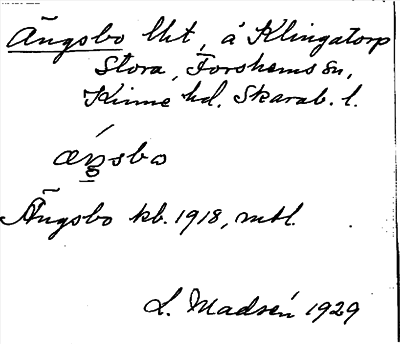 Ängsbo lht, å Klingatorp
Stora, Forshems sn,
Kinne hd. Skarab. l.
æŋsbo
Ängsbo kb. 1918, mtl.
L. Madsén 1929